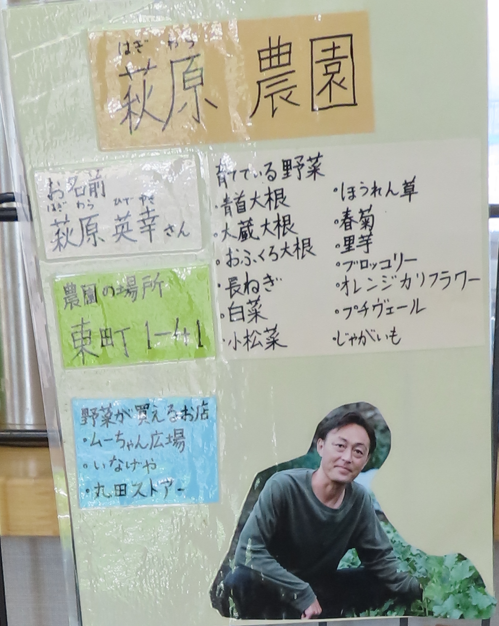 はぎ わら
萩原 農園
お名前
はぎ わら ひで ゆき
萩原 英幸さん
農園の場所
東町 1-41
野菜が買えるお店
・ムーちゃん広場
・いなげや
・丸田ストアー
育てている野菜
・青首大根
・大蔵大根
・おふくろ大根
・長ねぎ
・白菜
・小松菜
・ほうれん草
・春菊
・里芋
・ブロッコリー
・オレンジカリフラワー
・プチヴェール
・じゃがいも